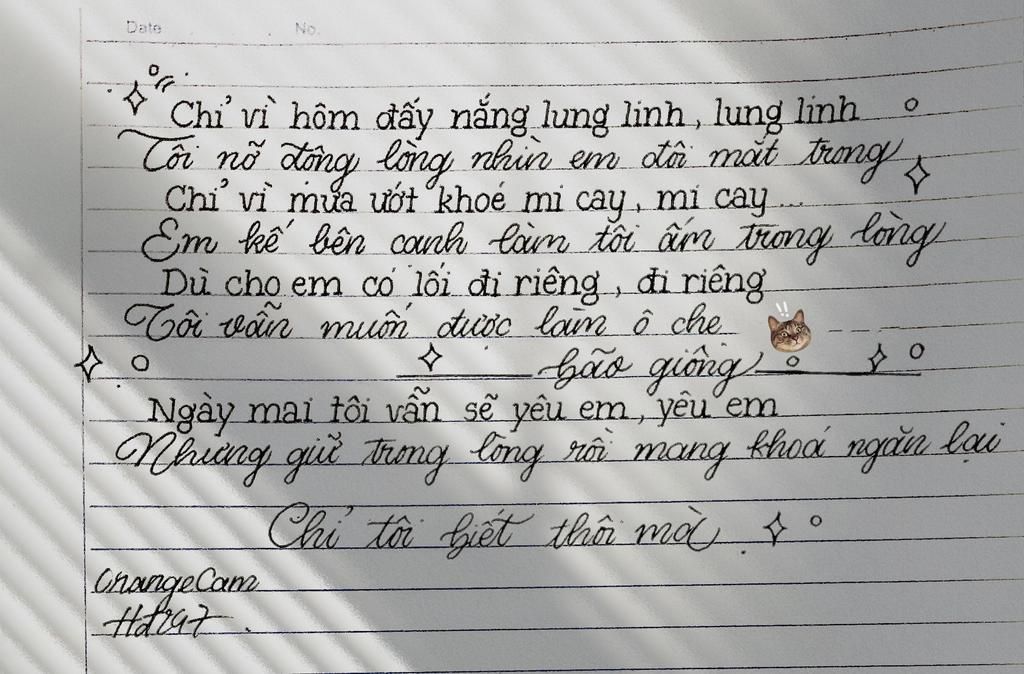 Date No.
Chỉ vì hôm đấy nắng lung linh, lung linh
Tôi nỡ động lòng nhìn em đôi mắt trong
Chỉ vì mưa ướt khoé mi cay, mi cay...
Em kế bên cạnh làm tôi ấm trong lòng
Dù cho em có lối đi riêng, đi riêng
Tôi vẫn muốn được làm ô che
bão giông
Ngày mai tôi vẫn sẽ yêu em, yêu em
Nhưng giữ trong lòng rồi mang khoá ngăn lại
Chỉ tôi biết thôi mà
OrangeCam